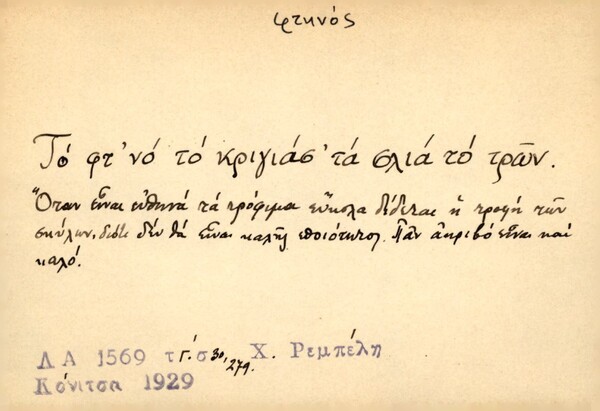 φτηνός
Τό φτ'νό τό κριγιάσ' τά σλιά τό τρῶν.
Ὅταν εἶναι εὐθηνά τά τρόφιμα εὔκολα δίδεται ἡ τροφή τῶν
σκύλων, διότι δέν θά εἶναι καλῆς ποιότητος. Πᾶν ἀκριβό εἶναι καί
καλό.
Λ Α 1569 τ Γ. σ 30, 279. Χ. Ρεμπέλη
Κόνιτσα 1929